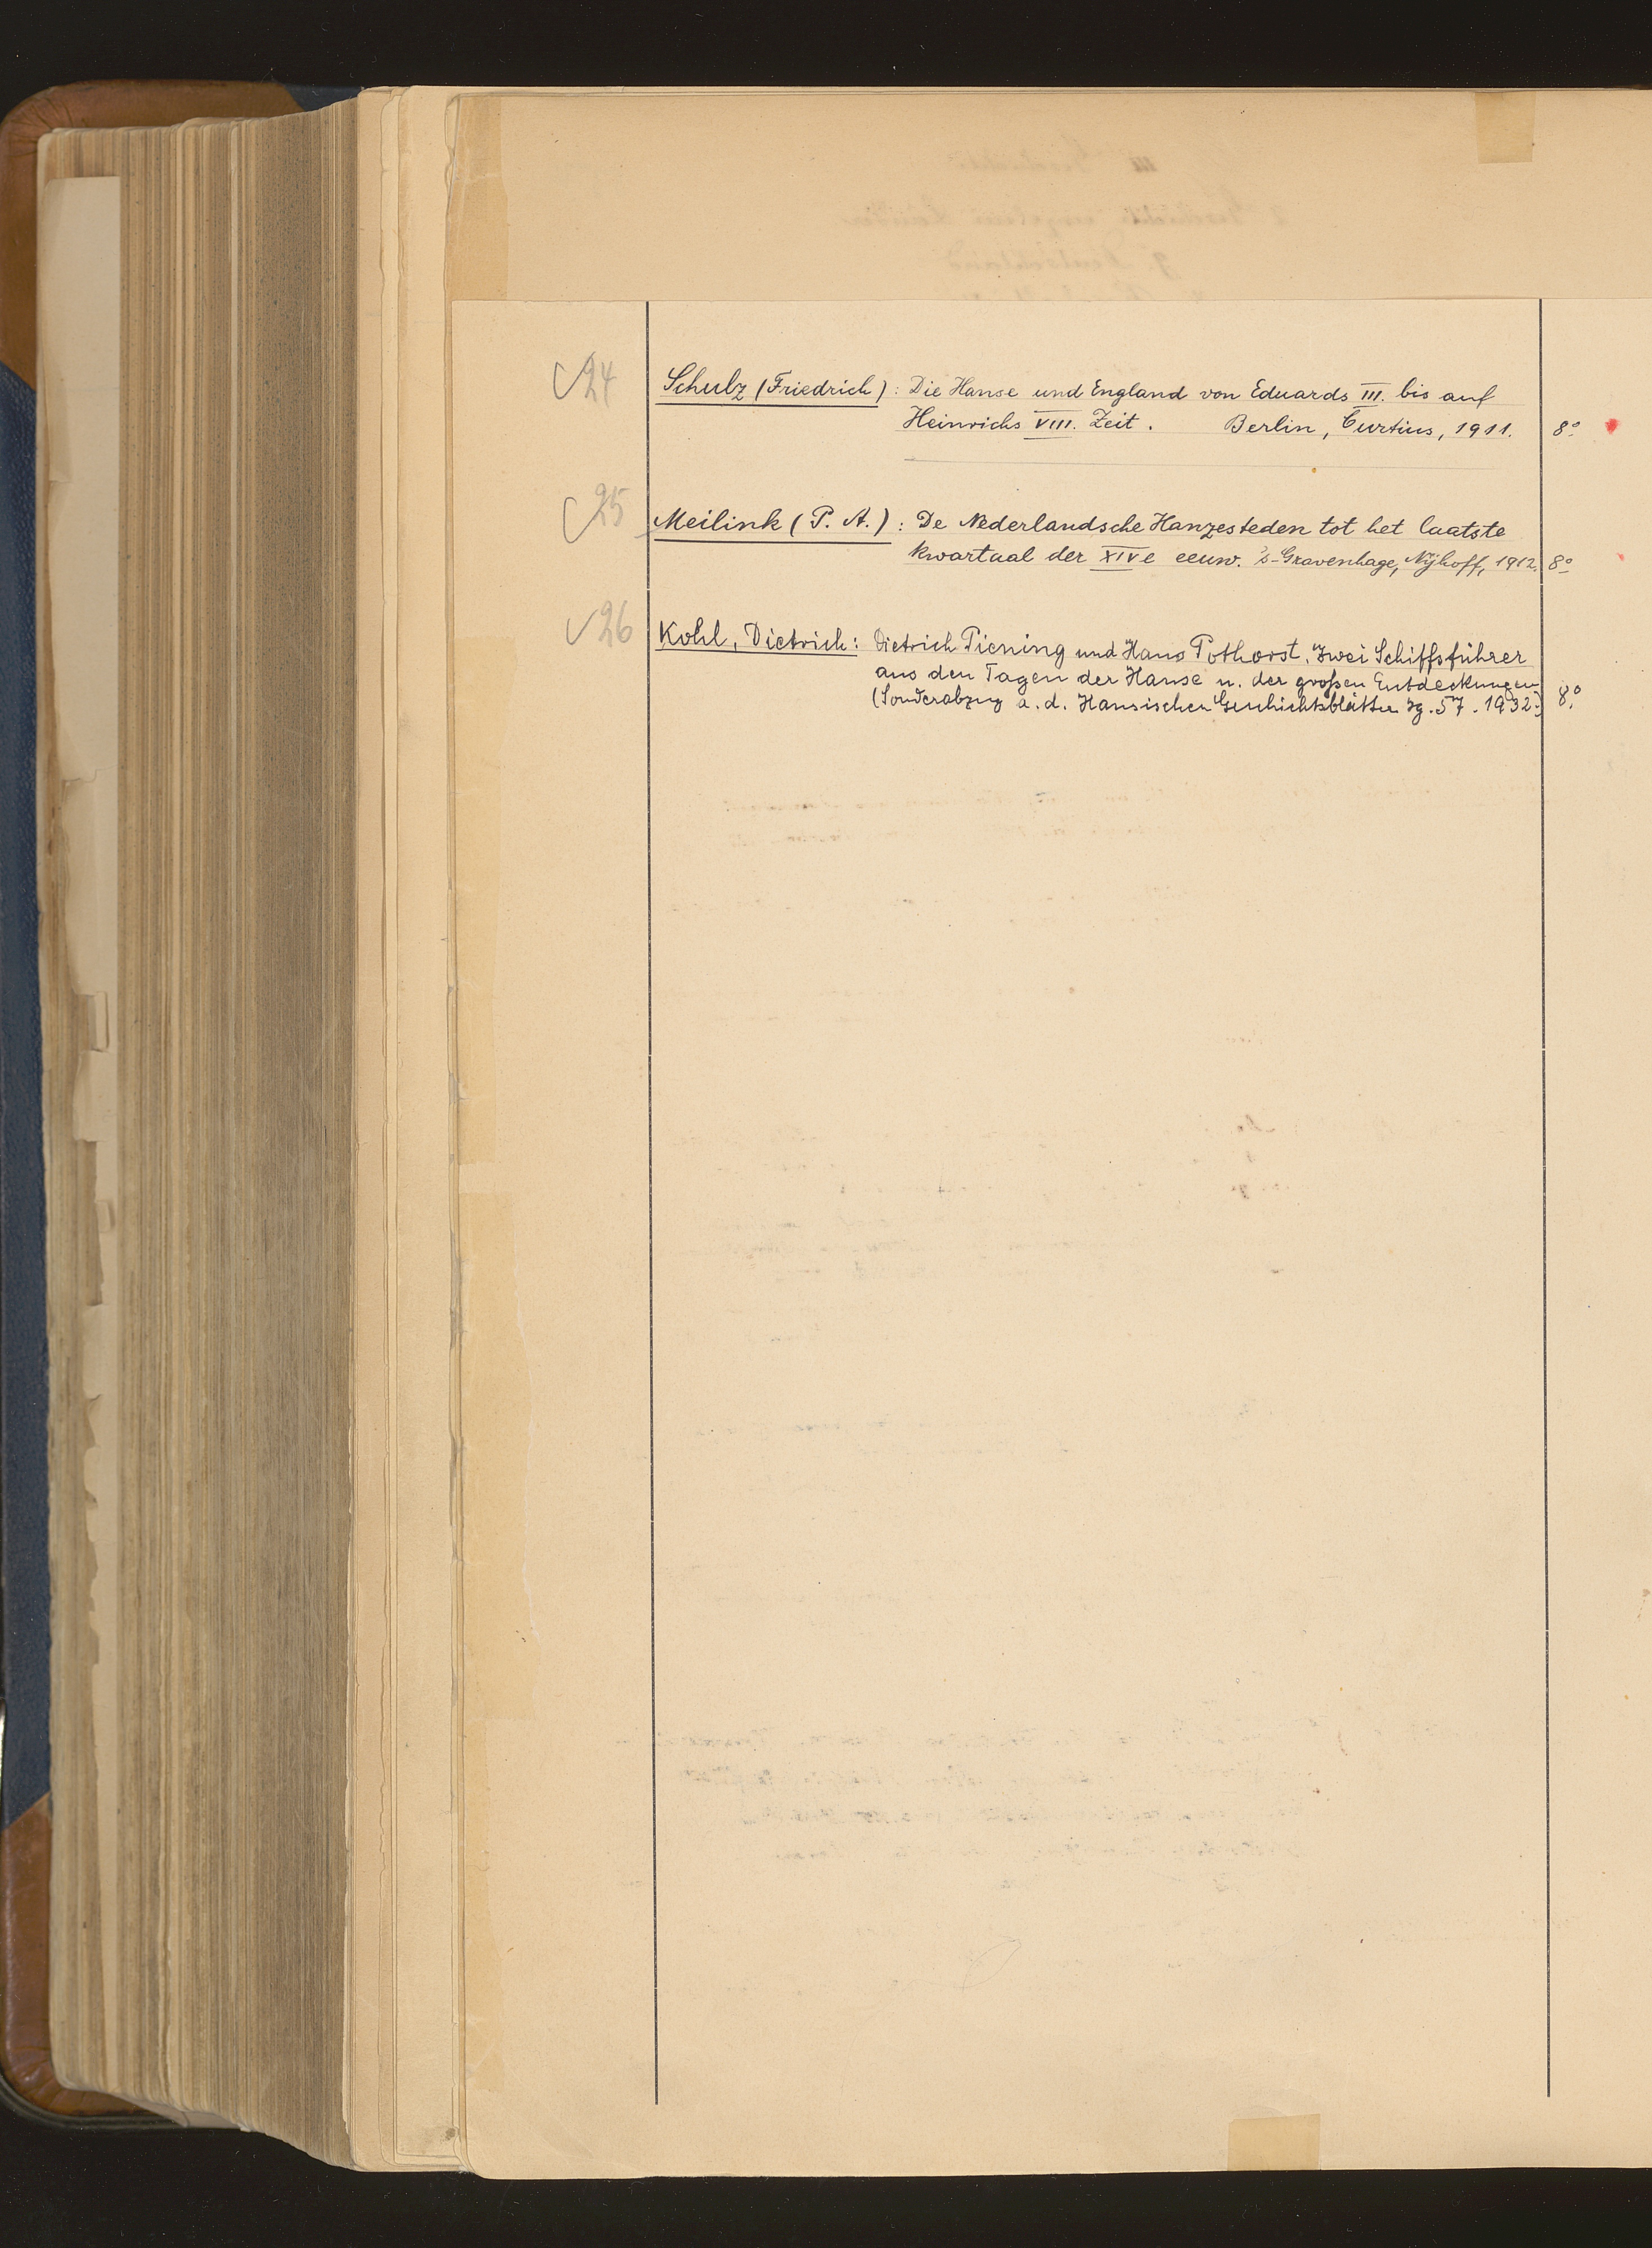 24 Schulz (Friedrich): Die Hanse und England von Eduards III. bis auf
Heinrichs VIII. Zeit. Berlin, Curtius, 1911. 8°
25 Meilink (P. A.): De Nederlandsche Hanzesteden tot het laatste
kwartaal der XIVe eeuw. 's-Gravenhage, Nijhoff, 1912. 8°
26 Kohl, Dietrich: Dietrich Piening und Hans Pothorst. Zwei Schiffsführer
aus den Tagen der Hanse u. der großen Entdeckungen
(Sonderabzug a. d. Hansischen Geschichtsblätter Jg. 57. 1932.) 8°